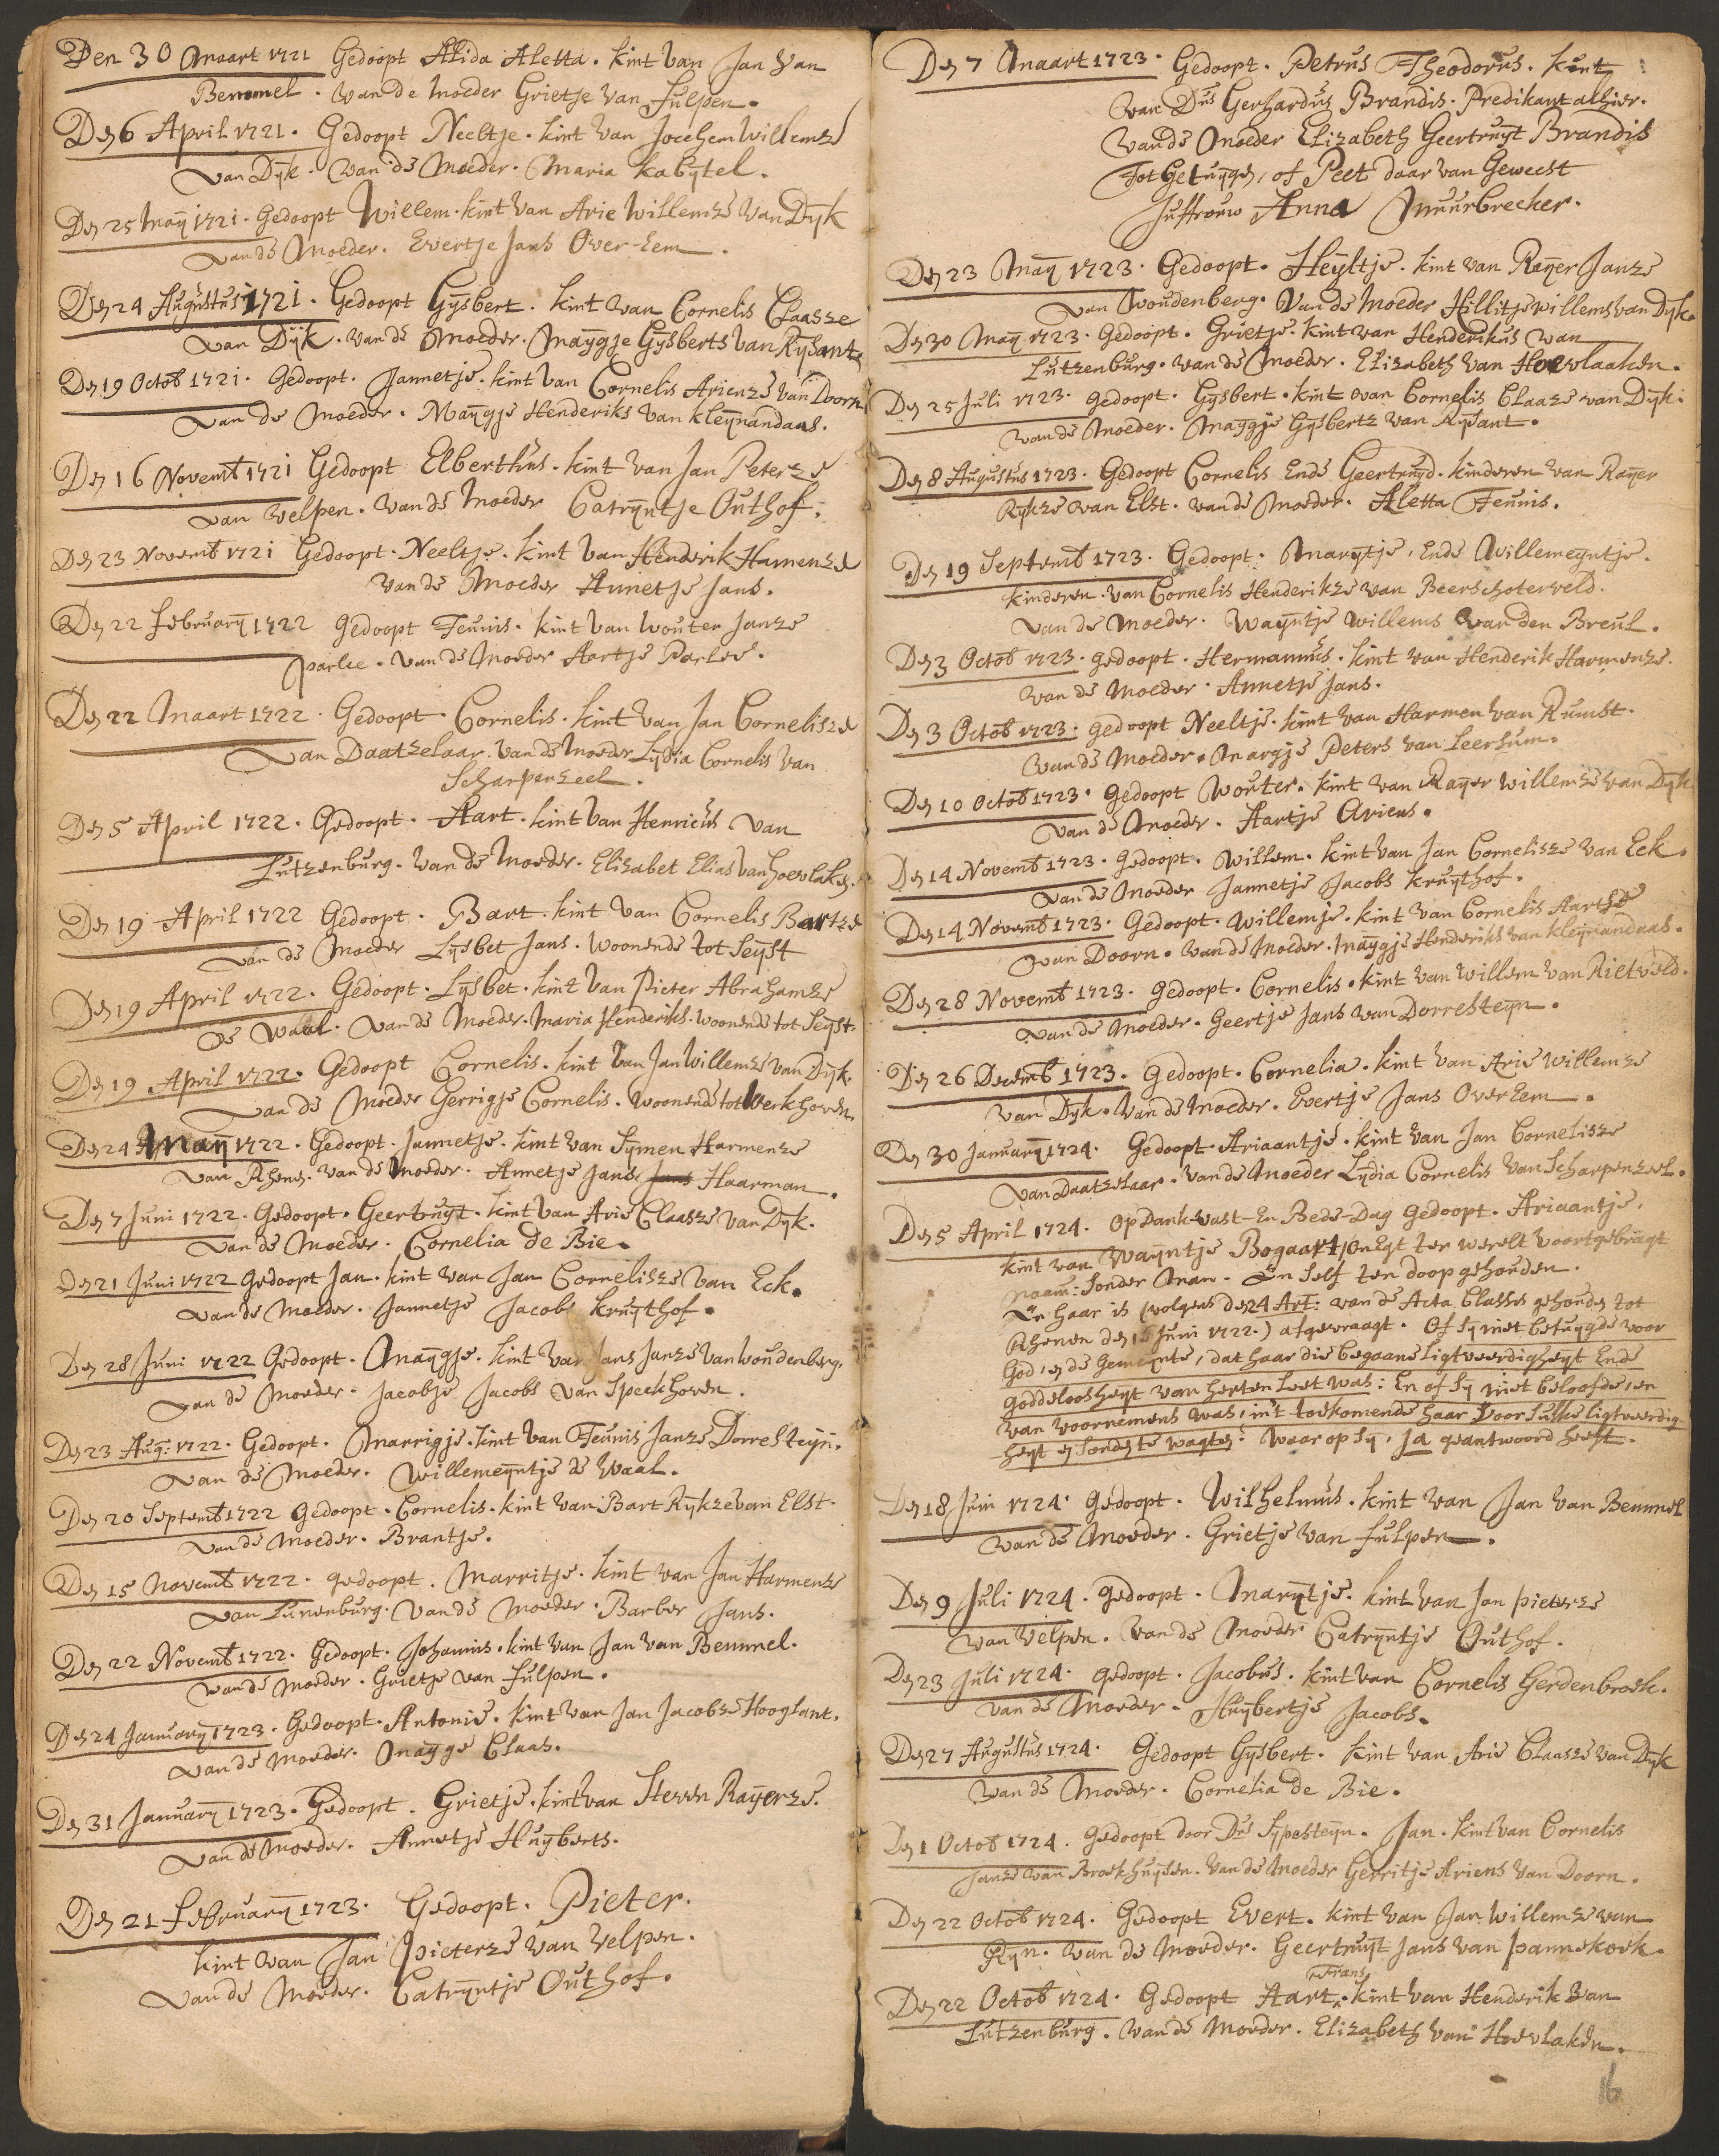 Den 30 Maart 1721 Gedoopt Alida Aletta. kint van Jan van
Bemmel. van de Moeder Grietje van Fulpen.
Den 6 April 1721. Gedoopt Neeltje. kint van Jochem Willemze
van Dyk. van de Moeder. Maria Kabytel.
Den 25 Maÿ 1721. Gedoopt Willem. kint van Arie Willemze van Dyk
van de Moeder. Evertje Jans Over-Eem.
Den 24 Augustus 1721. Gedoopt Gysbert. kint van Cornelis Claasze
van Dÿk. van de Moeder. Maÿgje Gysberts van Rysant.
Den 19 Octob 1721. Gedoopt. Jannetje. kint van Cornelis Arienze van Doorn
van de Moeder. Maÿgje Henderiks van Kleÿnandaas.
Den 16 Novemb 1721 Gedoopt Elberthus. kint van Jan Peterze
van Velpen. van de Moeder Catrÿntje Outhof.
Den 23 Novemb 1721 Gedoopt. Neeltje. kint van Henderik Harmenze
van de Moeder Annetje Jans.
Den 22 Februarÿ 1722 Gedoopt Teunis. kint van Wouter Janze
Parlee. van de Moeder Aartje Parlee.
Den 22 Maart 1722. Gedoopt. Cornelis. kint van Jan Cornelisze
van Daatzelaar. van de Moeder Lydia Cornelis van
Scharpenzeel.
Den 5 April 1722. Gedoopt. Aart. kint van Henricus van
Lutzenburg. van de Moeder. Elizabet Elias van Hoevlaken.
Den 19 April 1722 Gedoopt. Bart. kint van Cornelis Bartze
van de Moeder Lysbet Jans. woonende tot Seÿst
Den 19 April 1722. Gedoopt. Lysbet. kint van Pieter Abrahamze
de Waal. van de Moeder. Maria Henderiks. woonende tot Seÿst.
Den 19 April 1722. Gedoopt Cornelis. kint van Jan Willemze van Dÿk.
van de Moeder Gerrigje Cornelis. woonende tot Werkhoven.
Den 24 Maÿ 1722. Gedoopt. Jannetje. kint van Sÿmen Harmenze
van Rhenen. van de Moeder. Annetje Jans Jans Haarman.
Den 7 Juni 1722. Gedoopt. Geertruyt. kint van Arie Claasze van Dyk.
van de Moeder. Cornelia de Bie.
Den 21 Juni 1722 Gedoopt Jan. kint van Jan Cornelisze van Eck.
van de Moeder. Jannetje Jacobs Kruythof.
Den 28 Juni 1722 Gedoopt. Maÿgje. kint van Jans Janze van Woudenberg.
van de Moeder. Jacobje Jacobs van Speckhoven.
Den 23 Aug: 1722. Gedoopt. Marrigje. kint van Teunis Janze Dorresteÿn.
van de Moeder. Willemeÿntje de Waal.
Den 20 Septemb 1722 Gedoopt. Cornelis. kint van Bart Rykze van Elst.
van de Moeder. Brantje.
Den 15 Novemb 1722. gedoopt. Marritje. kint van Jan Harmenze
van Lunenburg. van de Moeder. Barber Jans.
Den 22 Novemb 1722. Gedoopt. Johannis. kint van Jan van Bemmel.
van de Moeder. Grietje van Fulpen.
Den 24 Januarÿ 1723. Gedoopt. Antonie. kint van Jan Jacobze Hooglant.
van de Moeder. Maÿge Claas.
Den 31 Januarÿ 1723. Gedoopt. Grietje. kint van Steven Raÿerze.
van de Moeder. Annetje Huÿberts.
Den 21 Februarÿ 1723. Gedoopt. Pieter.
kint van Jan Pieterze van Velpen.
van de Moeder. Catrÿntje Outhof.
Den 7 Maart 1723. Gedoopt. Petrus Theodorus. kint
van Dus Gerhardus Brandis. Predikant alhier.
van de Moeder Elizabeth Geertruyt Brandis
Tot Getuÿgen, of Peet daar van Geweest
Juffrouw Anna Muurbrecher.
Den 23 Maÿ 1723. Gedoopt. Heyltje. kint van Raÿer Janze
van Woudenberg. van de Moeder Hillitje Willems van Dyk.
Den 30 Maÿ 1723. Gedoopt. Grietje. kint van Henderikus van
Lutzenburg. van de Moeder. Elizabeth van Hoevlaaken.
Den 25 Juli 1723. gedoopt. Gysbert. kint van Cornelis Claaze van Dyk.
van de Moeder. Maygje Gysbertz van Rysant.
Den 8 Augustus 1723. Gedoopt Cornelis Ende Geertruyd. kinderen van Raÿer
Rykze van Elst. van de Moeder. Aletta Teunis.
Den 19 Septemb 1723. Gedoopt. Marÿtje, Ende Willemeyntje.
kinderen van Cornelis Henderikze van Beerschoterveld.
van de Moeder. Waÿntje Willems van den Breul.
Den 3 Octob 1723. gedoopt. Hermannus. kint van Henderik Harmenze.
van de Moeder. Annetje Jans.
Den 3 Octob 1723. gedoopt Neeltje. kint van Harmen van Rumst.
van de Moeder. Margje Peters van Leersum.
Den 10 Octob 1723. gedoopt Wouter. kint van Raÿer Willemze van Dyk
van de Moeder. Aartje Ariens.
Den 14 Novemb 1723. gedoopt. Willem. kint van Jan Cornelisze van Eck.
van de Moeder Jannetje Jacobs Kruythof.
Den 14 Novemb 1723. Gedoopt. Willemje. kint van Cornelis Aartze
van Doorn. van de Moeder. Maÿgje Henderiks van Kleÿnandaas.
Den 28 Novemb 1723. gedoopt. Cornelis. kint van Willem van Rietveld.
van de Moeder. Geertje Jans van Dorresteyn.
Den 26 Decemb 1723. gedoopt. Cornelia. kint van Arie Willemze
van Dyk. van de Moeder. Evertje Jans OverEem.
Den 30 Januarÿ 1724. Gedoopt Ariaantje. kint van Jan Cornelisze
van Daatzelaar. van de Moeder Lydia Cornelis van Scharpenzeel.
Den 5 April 1724. Op Dank-Vast-En Bede-Dag gedoopt. Ariaantje,
kint van Waÿntje Bogaart, onEgt ter werelt voortgebragt
naam: sonder Man. En self ten doop gehouden.
En haar is (volgens den 24 Art: van de Acta Classes gehouden tot
Rhenen den Juni 1722.) afgevraagt. Of sy niet betuygde voor
God, en de Gemeynte, dat haar die begaane ligtveerdigheyt Ende
goddeloosheyt van herten Leet was: En of sy niet beloofde, en
van voornemens was, in't toekomende haar voor sulke ligtveerdig-
heyt en sonde te wagten. Waar op sy, Ja geantwoord heeft.
Den 18 Juni 1724. gedoopt. Wilhelmus. kint van Jan van Bemmel
van de Moeder. Grietje van Fulpen.
Den 9 Juli 1724. gedoopt. Marÿtje. kint van Jan Pieterze
van Velpen. van de Moeder Catrÿntje Outhof.
Den 23 Juli 1724. gedoopt. Jacobus. kint van Cornelis Gerdenbroek.
van de Moeder. Huÿbertje Jacobs.
Den 27 Augustus 1724. Gedoopt Gysbert. kint van Arie Claasze van Dyk
van de Moeder. Cornelia de Bie.
Den 1 Octob 1724. gedoopt door Ds Sypesteyn. Jan. kint van Cornelis
Janze van Broekhuysen. van de Moeder Gerritje Ariens van Doorn.
Den 22 Octob 1724. Gedoopt Evert. kint van Jan Willemze van
Ryn. van de Moeder. Geertruyt Jans van Pannekoek.
Frans
Den 22 Octob 1724. Gedoopt Aart. kint van Henderik van
Lutzenburg. van de Moeder. Elizabeth van Hoevlaken.
16